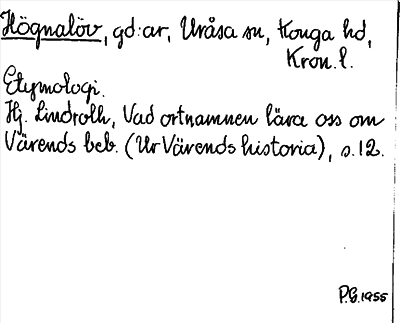 Högnalöv, gd:ar, Uråsa sn, Konga hd,
Kron. l.
Etymologi.
Hj. Lindroth, Vad ortnamnen lära oss om
Värends beb. (Ur Värends historia), s. 12.
P.G. 1955